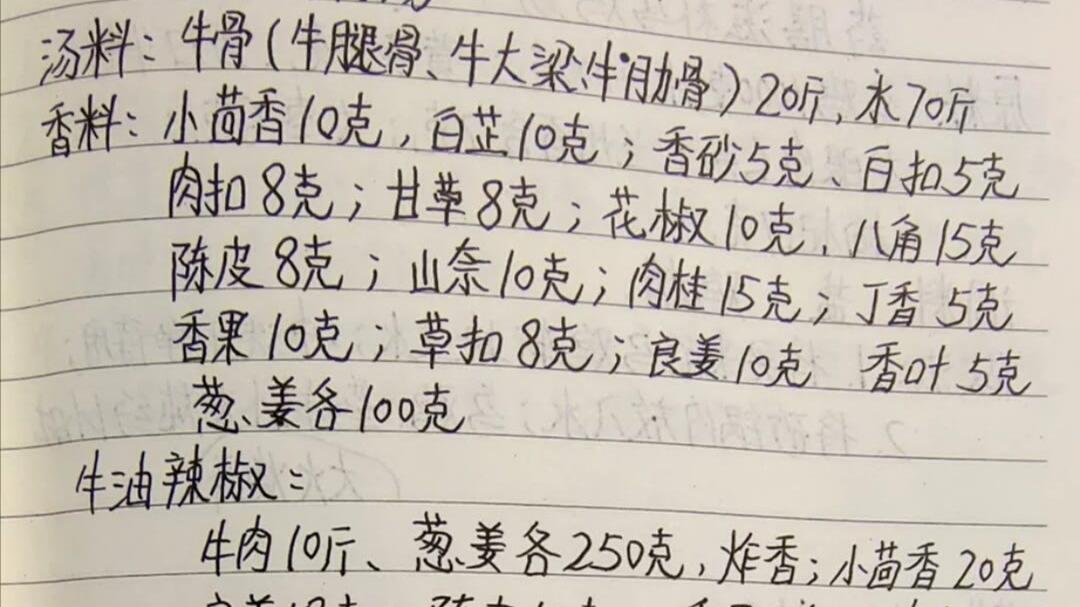 汤料：牛骨（牛腿骨、牛大梁、牛肋骨）20斤，水70斤
香料：小茴香10克，白芷10克；香砂5克、白扣5克
肉扣8克；甘草8克；花椒10克，八角15克
陈皮8克；山奈10克；肉桂15克；丁香5克
香果10克；草扣8克；良姜10克 香叶5克
葱、姜各100克
牛油辣椒：
牛肉10斤、葱、姜各250克，炸香；小茴香20克